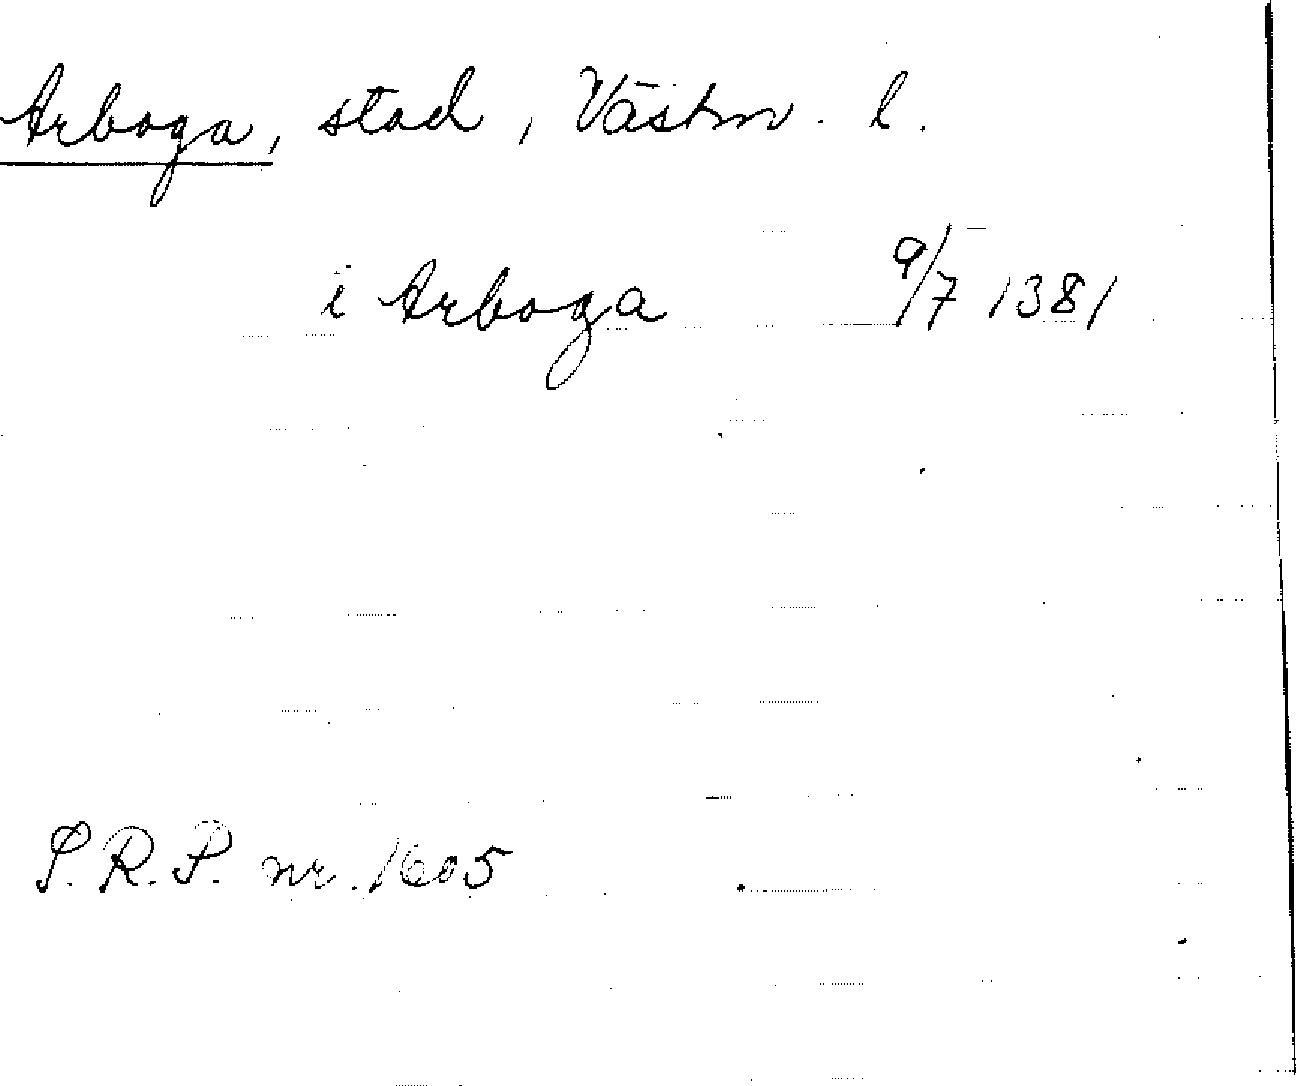 Arboga, stad, Västm. l.
i Arboga 9/7 1381
S.R.P. nr. 1605